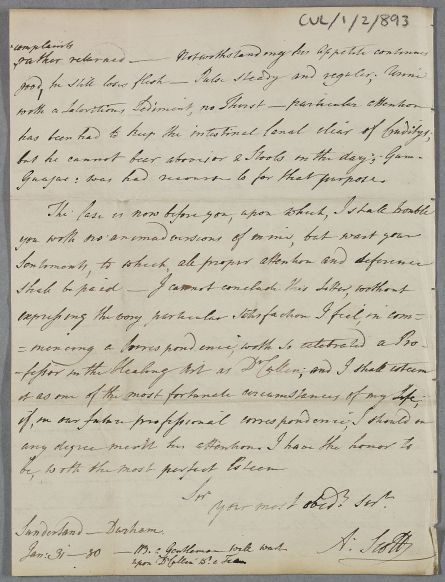 CUL/1/2/893
complaints
rather returned — Notwithstanding his appetite continues
good, he still loses flesh — Pulse steady and regular; Urine
with a lateritious Sediment, no Thirst — particular attention
has been had to keep the intestinal Canal clear of Cruditys,
but he cannot bear above or 2 Stools in the day; Gum
Guajac: was had recourse to for that purpose.
The Case is now before you, upon which, I shall trouble
you with no animadversions of mine, but wait your
Sentiments, to which, all proper attention and deference
shall be paid — I cannot conclude this Letter, without
expressing the very particular Satisfaction I feel, in com=
=mencing a Correspondence, with so celebrated a Pro-
-fessor in the Healing Art as Dr Cullen; and I shall esteem
it as one of the most fortunate circumstances of my Life;
if, in our future professional correspondence, I should in
any degree merit his attention. I have the honor to
be, with the most perfect Esteem
Sir
your most obedt. Sert.
A: Scott
Sunderland — Durham.
Jan: 31 - 80 — NB. a Gentleman will wait
upon Dr Cullen